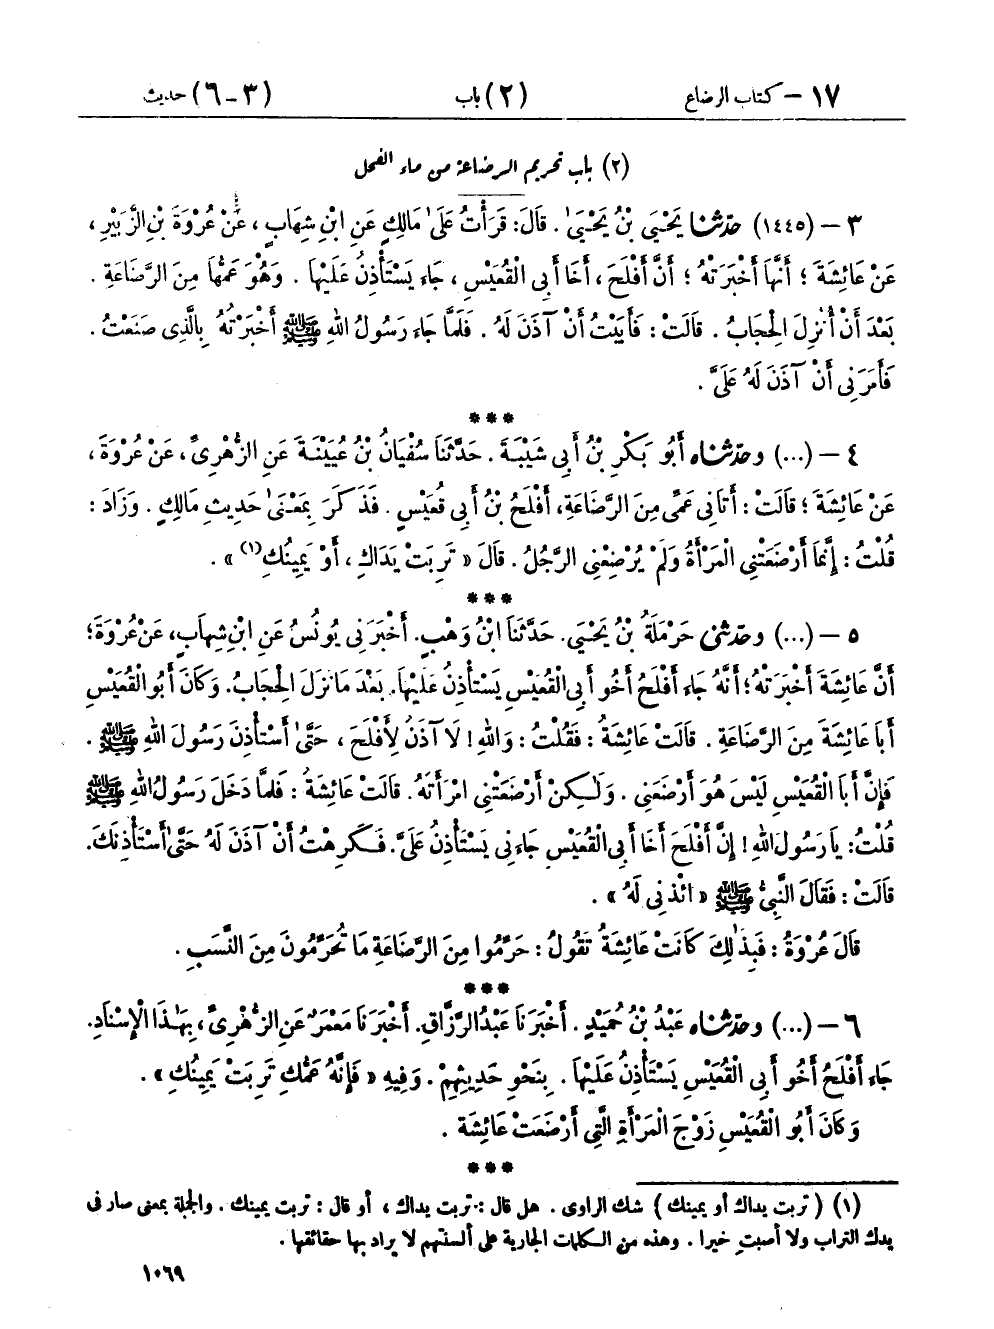 ١٧ – كتاب الرضاع (٢) باب (٣ – ٦) حديث
(٢) باب تحريم الرضاعة من ماء الفحل
٣ – (١٤٤٥) حدّثنا يَحْيَى بْنُ يَحْيَىٰ . قَالَ: قَرَأْتُ عَلَىٰ مَالِكٍ عَنِ ابْنِ شِهَابٍ ، عَنْ عُرْوَةَ بْنِ الزُّبَيْرِ ،
عَنْ عَائِشَةَ ؛ أَنَّهَا أَخْبَرَتْهُ ؛ أَنَّ أَفْلَحَ ، أَخَا أَبِي الْقُعَيْسِ ، جَاءَ يَسْتَأْذِنُ عَلَيْهَا . وَهُوَ عَمُّهَا مِنَ الرَّضَاعَةِ .
بَعْدَ أَنْ أُنْزِلَ الْحِجَابُ . قَالَتْ : فَأَبَيْتُ أَنْ آذَنَ لَهُ . فَلَمَّا جَاءَ رَسُولُ اللهِ ﷺ أَخْبَرْتُهُ بِالَّذِي صَنَعْتُ .
فَأَمَرَنِي أَنْ آذَنَ لَهُ عَلَيَّ .
***
٤ – (...) وحدّثناه أَبُو بَكْرِ بْنُ أَبِي شَيْبَةَ . حَدَّثَنَا سُفْيَانُ بْنُ عُيَيْنَةَ عَنِ الزُّهْرِيِّ ، عَنْ عُرْوَةَ ،
عَنْ عَائِشَةَ ؛ قَالَتْ : أَتَانِي عَمِّي مِنَ الرَّضَاعَةِ، أَفْلَحُ بْنُ أَبِي قُعَيْسٍ . فَذَكَرَ بِمَعْنَىٰ حَدِيثِ مَالِكٍ . وَزَادَ :
قُلْتُ : إِنَّمَا أَرْضَعَتْنِي الْمَرْأَةُ وَلَمْ يُرْضِعْنِي الرَّجُلُ . قَالَ « تَرِبَتْ يَدَاكِ ، أَوْ يَمِينُكِ(١) » .
***
٥ – (...) وحدّثني حَرْمَلَةُ بْنُ يَحْيَىٰ. حَدَّثَنَا ابْنُ وَهْبٍ. أَخْبَرَنِي يُونُسُ عَنِ ابْنِ شِهَابٍ، عَنْ عُرْوَةَ؛
أَنَّ عَائِشَةَ أَخْبَرَتْهُ؛ أَنَّهُ جَاءَ أَفْلَحُ أَخُو أَبِي الْقُعَيْسِ يَسْتَأْذِنُ عَلَيْهَا. بَعْدَ مَا نَزَلَ الْحِجَابُ. وَكَانَ أَبُو الْقُعَيْسِ
أَبَا عَائِشَةَ مِنَ الرَّضَاعَةِ . قَالَتْ عَائِشَةُ : فَقُلْتُ : وَاللهِ ! لَا آذَنُ لِأَفْلَحَ ، حَتَّىٰ أَسْتَأْذِنَ رَسُولَ اللهِ ﷺ .
فَإِنَّ أَبَا الْقُعَيْسِ لَيْسَ هُوَ أَرْضَعَنِي . وَلَـٰكِنْ أَرْضَعَتْنِي امْرَأَتُهُ . قَالَتْ عَائِشَةُ : فَلَمَّا دَخَلَ رَسُولُ اللهِ ﷺ
قُلْتُ: يَا رَسُولَ اللهِ! إِنَّ أَفْلَحَ أَخَا أَبِي الْقُعَيْسِ جَاءَنِي يَسْتَأْذِنُ عَلَيَّ. فَكَرِهْتُ أَنْ آذَنَ لَهُ حَتَّىٰ أَسْتَأْذِنَكَ.
قَالَتْ : فَقَالَ النَّبِيُّ ﷺ « ائْذَنِي لَهُ » .
قَالَ عُرْوَةُ : فَبِذَٰلِكَ كَانَتْ عَائِشَةُ تَقُولُ : حَرِّمُوا مِنَ الرَّضَاعَةِ مَا تُحَرِّمُونَ مِنَ النَّسَبِ .
***
٦ – (...) وحدّثناه عَبْدُ بْنُ حُمَيْدٍ . أَخْبَرَنَا عَبْدُ الرَّزَّاقِ. أَخْبَرَنَا مَعْمَرٌ عَنِ الزُّهْرِيِّ ، بِهَـٰذَا الْإِسْنَادِ.
جَاءَ أَفْلَحُ أَخُو أَبِي الْقُعَيْسِ يَسْتَأْذِنُ عَلَيْهَا . بِنَحْوِ حَدِيثِهِمْ . وَفِيهِ « فَإِنَّهُ عَمُّكِ تَرِبَتْ يَمِينُكِ » .
وَكَانَ أَبُو الْقُعَيْسِ زَوْجَ الْمَرْأَةِ الَّتِي أَرْضَعَتْ عَائِشَةَ .
***
(١) ( تربت يداك أو يمينك ) شك الراوى . هل قال : تربت يداك ، أو قال : تربت يمينك . والجملة بمعنى صار فى
يدك التراب ولا أصبتِ خيرا . وهذه من الكلمات الجارية على ألسنتهم لا يراد بها حقائقها .
١٠٦٩